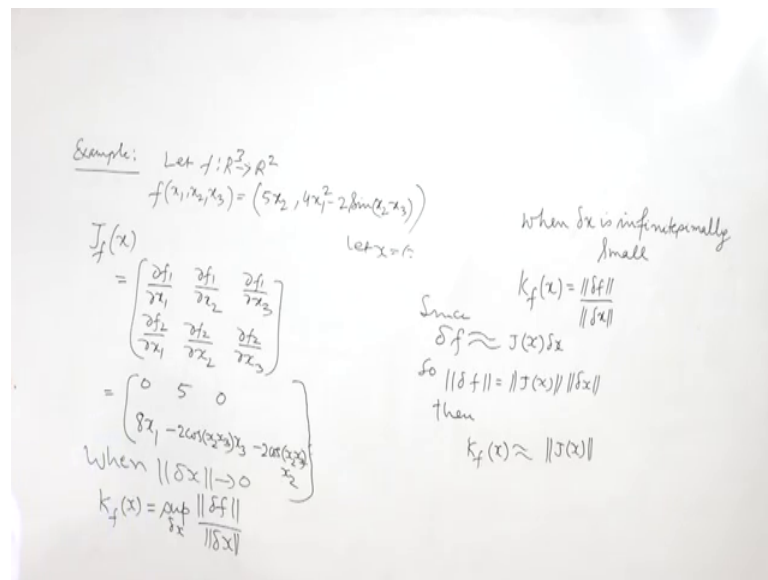 Example: Let f: R³→R²
f(x₁,x₂,x₃) = (5x₂, 4x₁²-2sin(x₂x₃))
Let x=(
J_f(x)
= (∂f₁/∂x₁ ∂f₁/∂x₂ ∂f₁/∂x₃
∂f₂/∂x₁ ∂f₂/∂x₂ ∂f₂/∂x₃)
= (0 5 0
8x₁ -2cos(x₂x₃)x₃ -2cos(x₂x₃)x₂)
When ||δx||→0
K_f(x) = sup_δx ||δf||/||δx||
When δx is infinitesimally
small
K_f(x) = ||δf||/||δx||
Since
δf ≈ J(x)δx
So ||δf|| = ||J(x)|| ||δx||
then
K_f(x) ≈ ||J(x)||